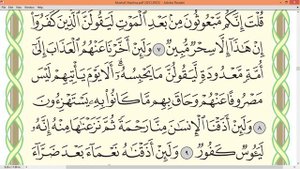 Mushaf Madina.pdf (SECURED) - Adobe Reader
قُلْتَ إِنَّكُم مَّبْعُوثُونَ مِنۢ بَعْدِ ٱلْمَوْتِ لَيَقُولَنَّ ٱلَّذِينَ كَفَرُوٓا۟
إِنْ هَٰذَآ إِلَّا سِحْرٌ مُّبِينٌ ٧ وَلَئِنْ أَخَّرْنَا عَنْهُمُ ٱلْعَذَابَ إِلَىٰٓ
أُمَّةٍ مَّعْدُودَةٍ لَّيَقُولُنَّ مَا يَحْبِسُهُۥٓ أَلَا يَوْمَ يَأْتِيهِمْ لَيْسَ
مَصْرُوفًا عَنْهُمْ وَحَاقَ بِهِم مَّا كَانُوا۟ بِهِۦ يَسْتَهْزِءُونَ
٨ وَلَئِنْ أَذَقْنَا ٱلْإِنسَٰنَ مِنَّا رَحْمَةً ثُمَّ نَزَعْنَٰهَا مِنْهُ إِنَّهُۥ
لَيَـُٔوسٌ كَفُورٌ ٩ وَلَئِنْ أَذَقْنَٰهُ نَعْمَآءَ بَعْدَ ضَرَّآءَ